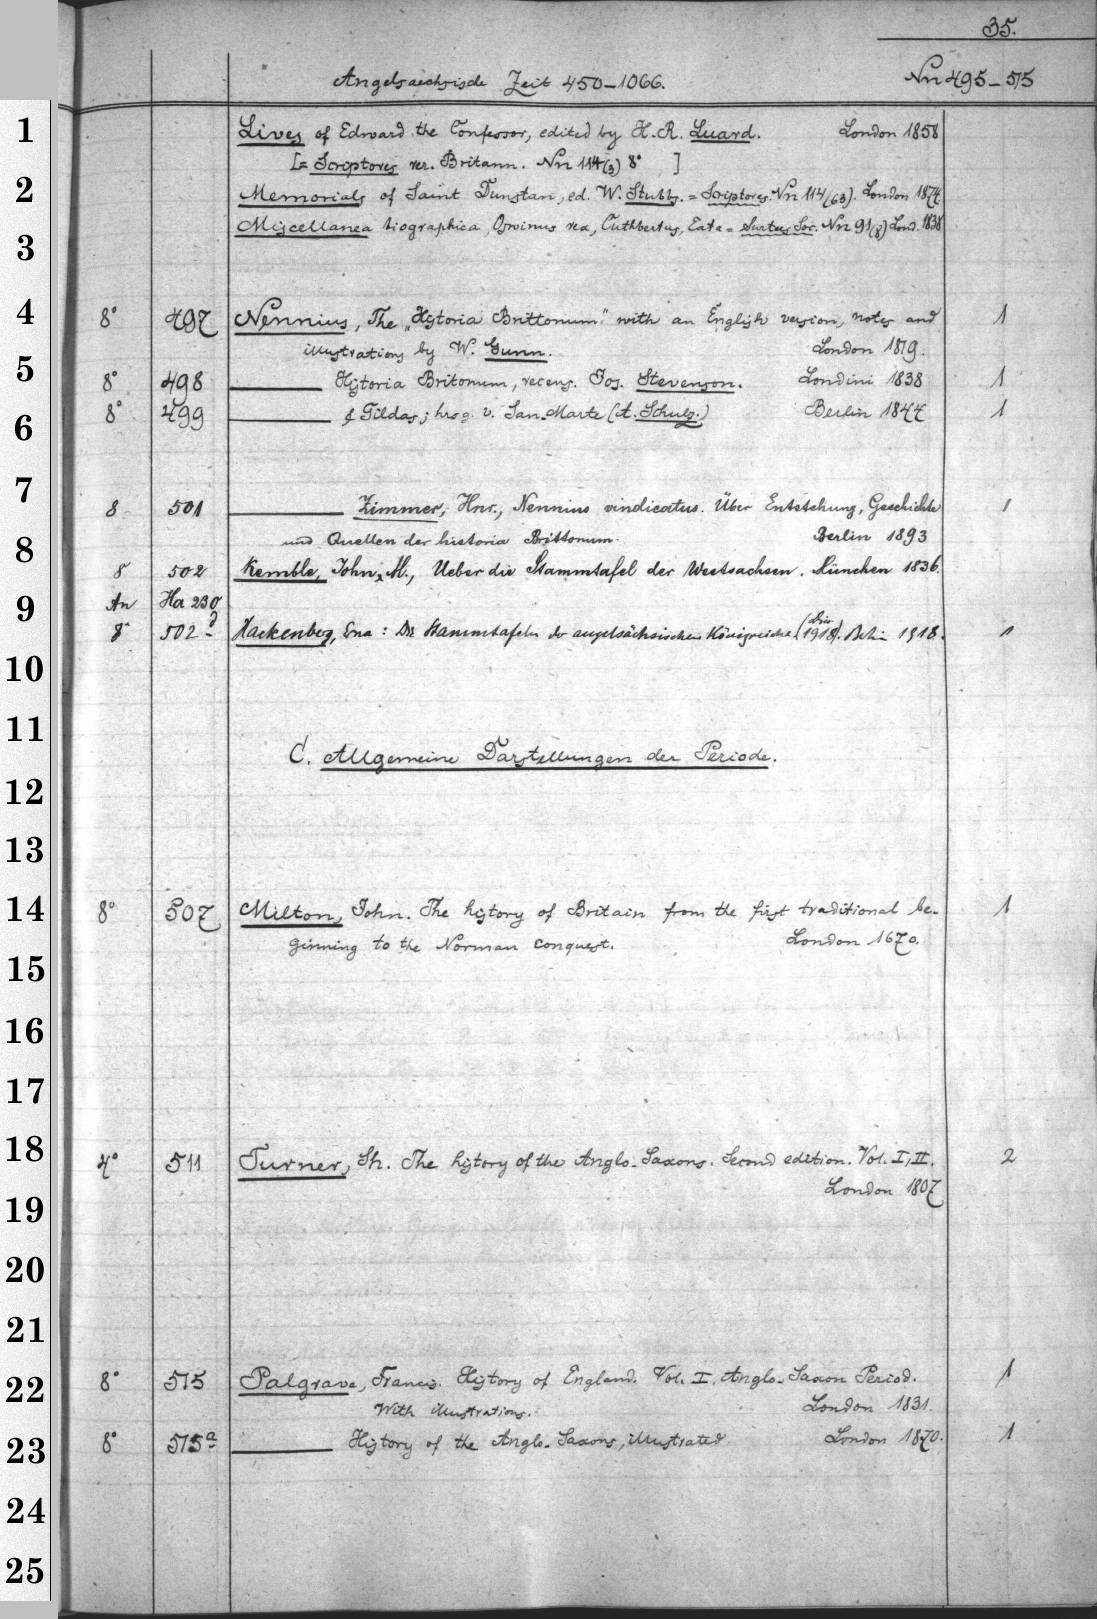 35.
Angelsaechsische Zeit 450-1066. Nrr 495-515
1 Lives of Edward the Confessor, edited by H. R. Luard. London 1858
[= Scriptores rer. Britann. Nrr 114(3) 8° ]
2 Memorials of Saint Dunstan, ed. W. Stubbs. = Scriptores. Nrr 114(63). London 1874
3 Miscellanea biographica, Oswinus rex, Cuthbertus, Eata = Surtees Soc. Nrr 91(8) Lond. 1838
4 8° 497 Nennius, The „Historia Brittonum" with an English version, notes and 1
illustrations by W. Gunn. London 1819.
5 8° 498 ——— Historia Britonum, recens. Jos. Stevenson. Londini 1838 1
6 8° 499 ——— & Gildas; hrsg. v. San-Marte (A. Schulz.) Berlin 1844 1
7 8 501 ——— Zimmer, Hnr., Nennius vindicatus. Über Entstehung, Geschichte 1
8 und Quellen der historia Brittonum. Berlin 1893
8 502 Kemble, John, M., Ueber die Stammtafel der Westsachsen. München 1836.
9 An Ha 230
8° 502 d Hackenberg, Erna: Die Stammtafeln der angelsächsischen Königreiche. (Diss. 1918). Berlin 1918. 1
10
11
C. Allgemeine Darstellungen der Periode.
12
13
14 8° 507 Milton, John. The history of Britain from the first traditional be- 1
ginning to the Norman conquest. London 1670.
15
16
17
18 4° 511 Turner, Sh. The history of the Anglo-Saxons. Second edition. Vol. I, II. 2
London 1807
19
20
21
22 8° 515 Palgrave, Francis. History of England. Vol. I. Anglo-Saxon Period. 1
With illustrations. London 1831.
23 8° 515a ——— History of the Anglo-Saxons, illustrated London 1870. 1
24
25